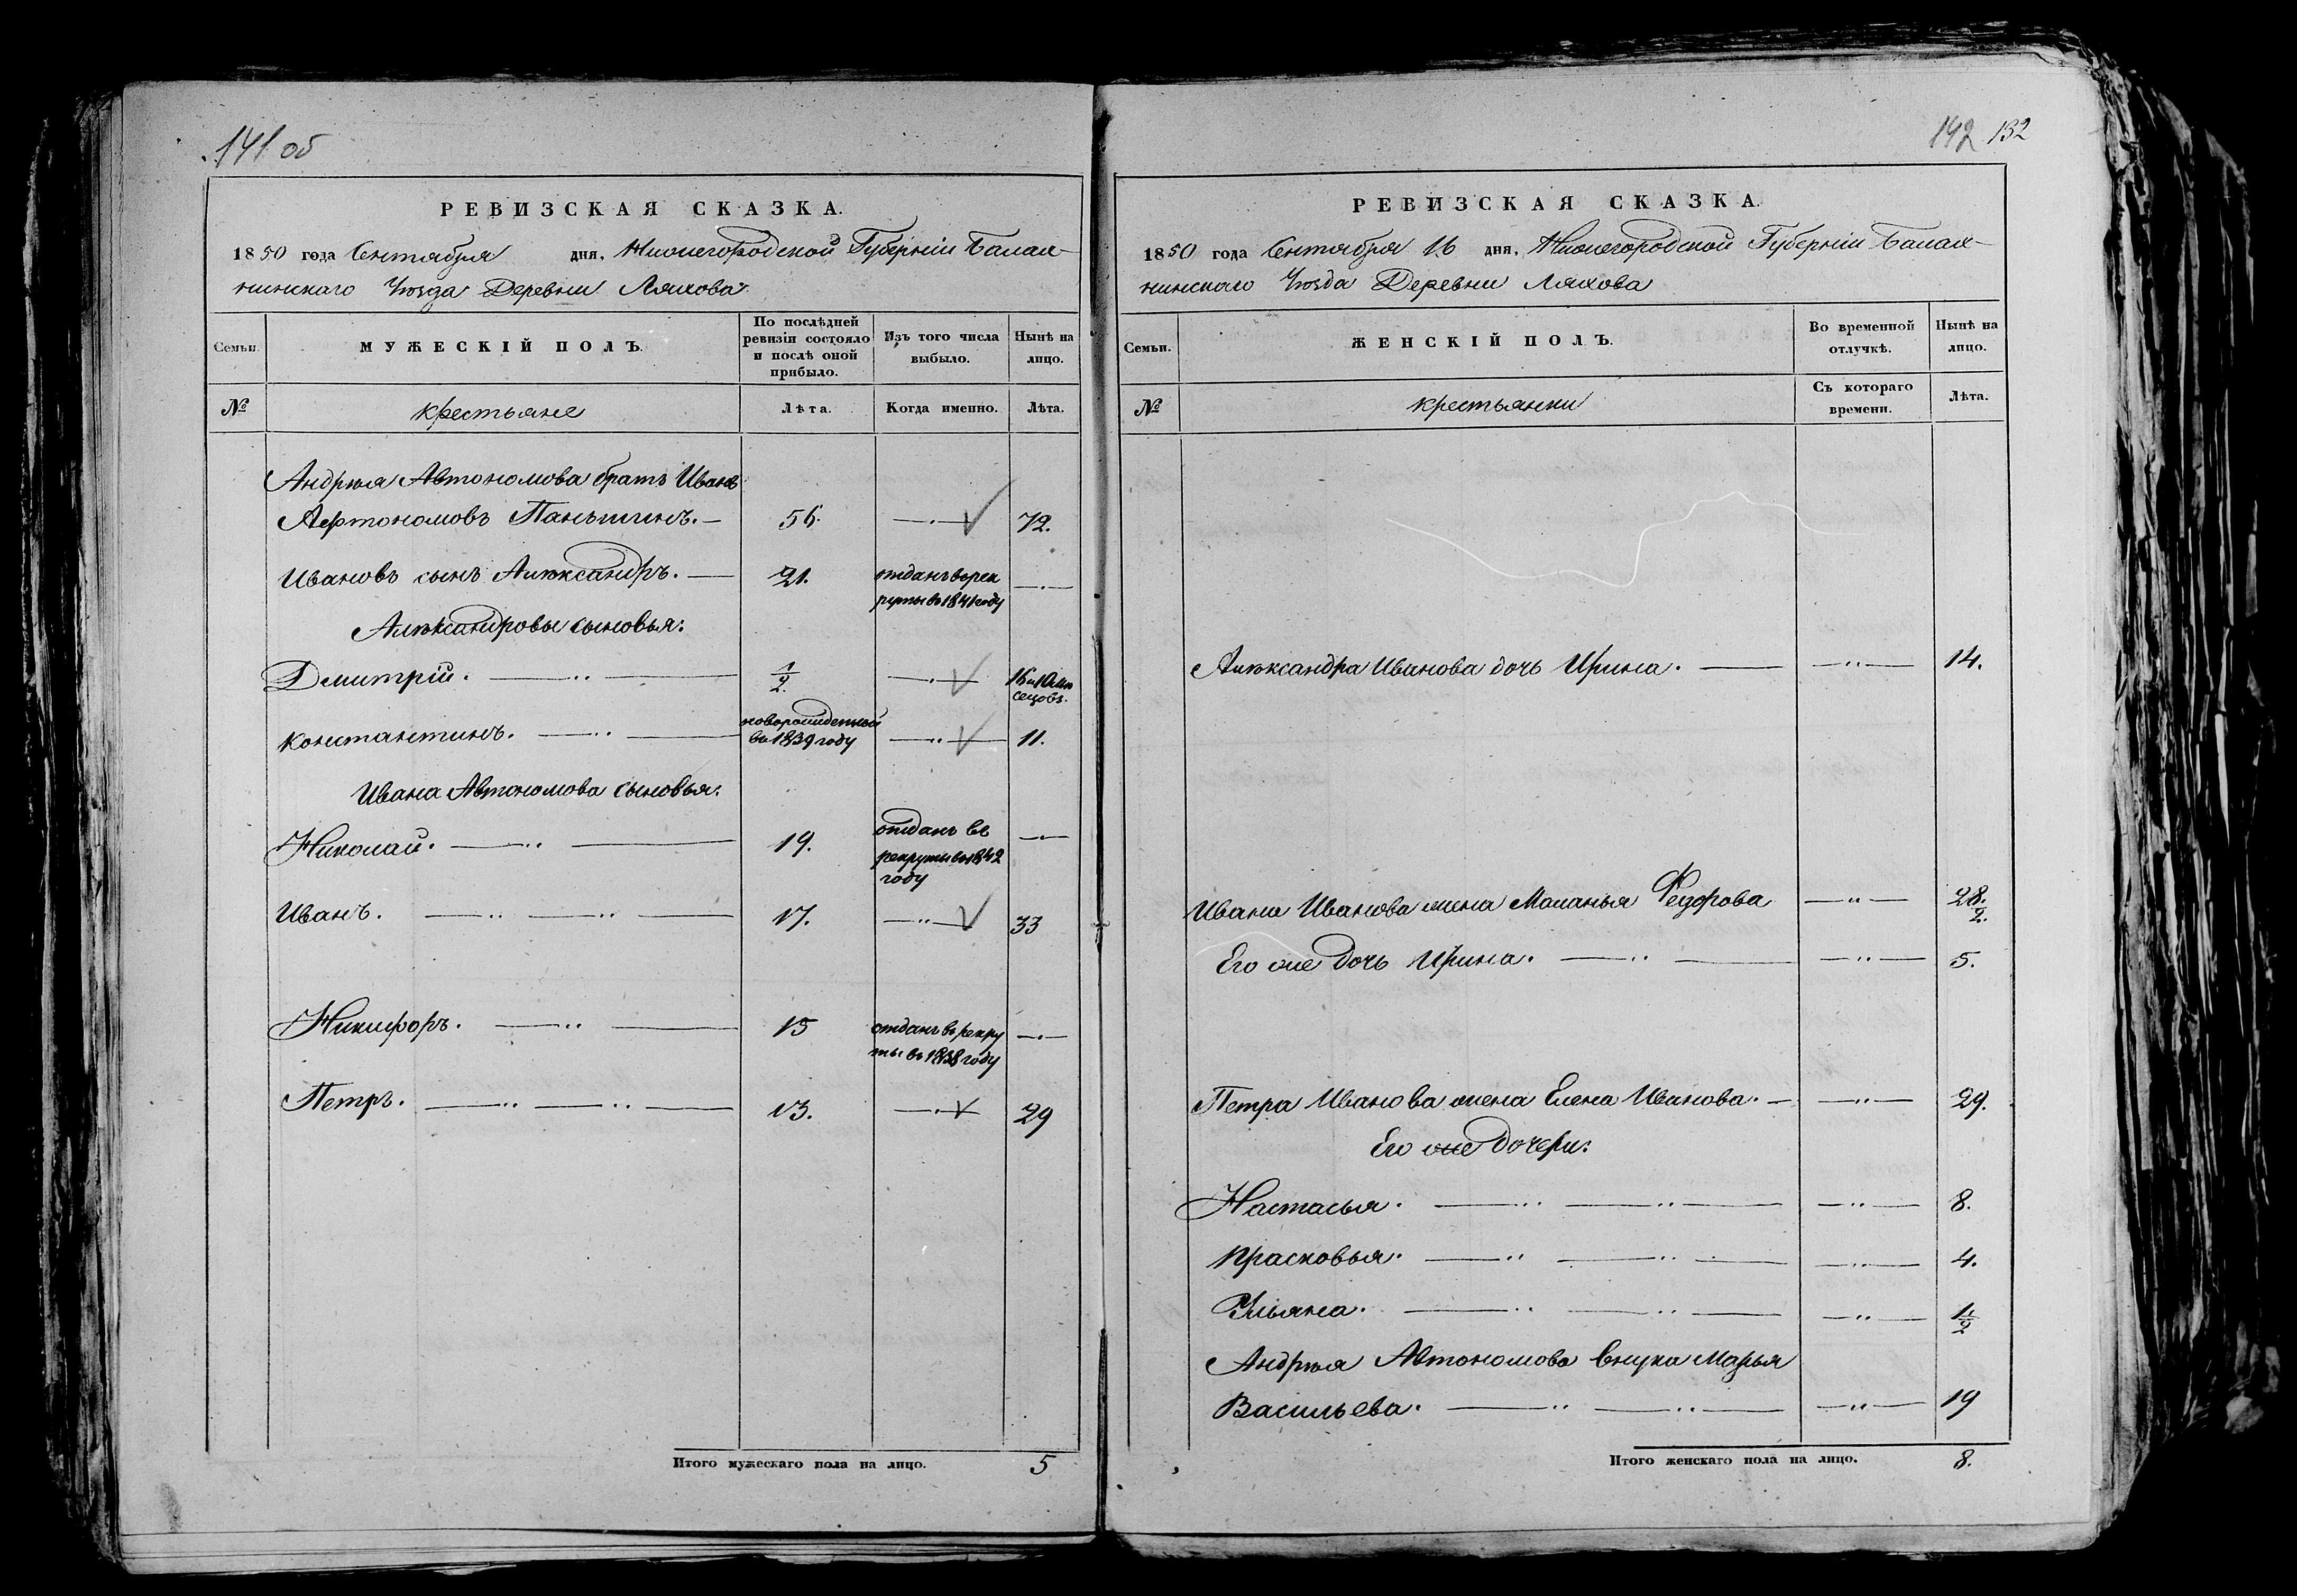 141 об
РЕВИЗСКАЯ СКАЗКА.
1850 года Сентября дня, Нижегородской Губерніи Балах-
нинскаго Уѣзда Деревни Ляхова
Семьи.
МУЖЕСКІЙ ПОЛЪ.
По послѣдней
ревизіи состояло
и послѣ оной
прибыло.
Изъ того числа
выбыло.
Нынѣ на
лицо.
№
крестьяне
Лѣта.
Когда именно.
Лѣта.
Андрѣя Автономова братъ Иванъ
Афтономовъ Паньшинъ. 56. 72.
Ивановъ сынъ Алѣксандръ. 21. отданъ в рек
руты въ 1841 году
Алѣксандровы сыновья:
Дмитрій. 1/2. 16 и 10 мѣ
сецовъ.
Константинъ. новорожденный
въ 1839 году 11.
Ивана Автономова сыновья:
Николай. 19. отданъ въ
рекруты въ 1842
году
Иванъ. 17. 33
Никифоръ. 15 отданъ въ рекру
ты въ 1838 году
Петръ. 13. 29
Итого мужескаго пола на лицо. 5
142 132
РЕВИЗСКАЯ СКАЗКА.
1850 года Сентября 16 дня, Нижегородской Губерніи Балах-
нинскаго Уѣзда Деревни Ляхова
Семьи.
ЖЕНСКІЙ ПОЛЪ.
Во временной
отлучкѣ.
Нынѣ на
лицо.
№
крестьянки
Съ котораго
времени.
Лѣта.
Алѣксандра Иванова дочь Ирина. 14.
Ивана Иванова жена Маланья Федорова 28.
2.
Его же дочь Ирина. 5.
Петра Иванова жена Елена Иванова. 29.
Его же дочери:
Настасья. 8.
Прасковья. 4.
Ульяна. 1/2
Андрѣя Автономова внука Марья
Васильева. 19
Итого женскаго пола на лицо. 8.